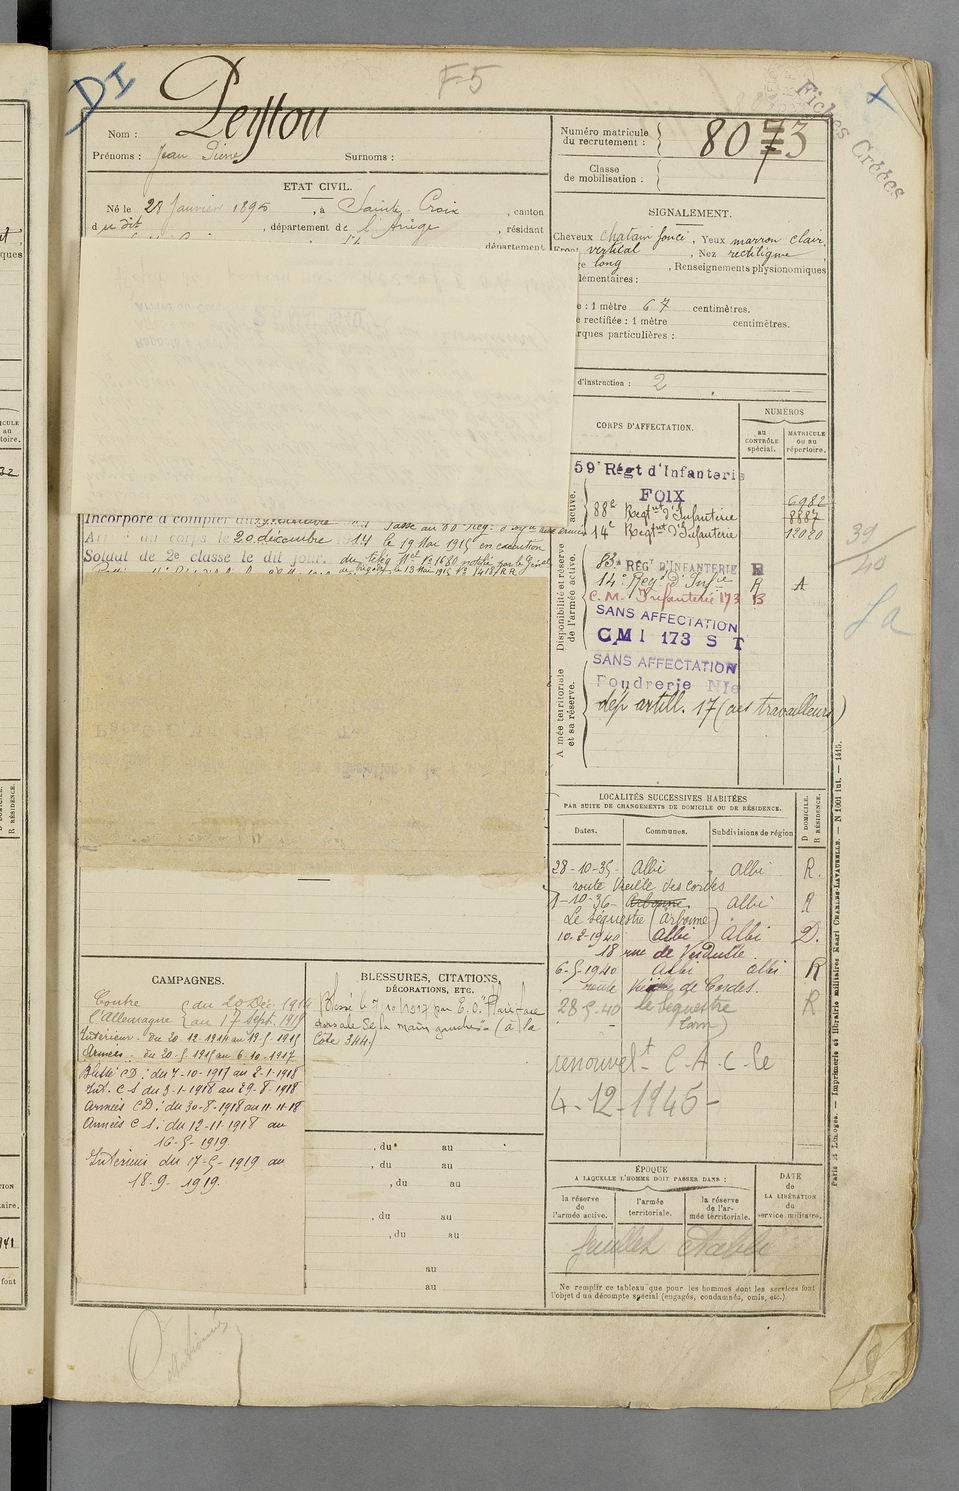 DI
F-5
Fiches Créées
Nom : Peyrou
Prénoms : Jean Pierre Surnoms :
Numéro matricule du recrutement : 8073
Classe de mobilisation :
ETAT CIVIL.
Né le 28 Janvier 1895, à Sainte-Croix, canton
du dit, département de l'Ariège, résidant
département
SIGNALEMENT.
Cheveux chatain foncé, Yeux marron clair,
Front vertical, Nez rectiligne,
long, Renseignements physionomiques
lémentaires :
e : 1 mètre 67 centimètres.
e rectifiée : 1 mètre centimètres.
rques particulières :
d'instruction : 2
CORPS D'AFFECTATION.
NUMÉROS
au CONTRÔLE spécial.
MATRICULE ou au répertoire.
59e Régt d'Infanterie
FOIX
6982
88e Regt d'Infanterie 8887
14e Regt d'Infanterie 12020
active.
Incorporé à compter du
Passé au 88 Rég
au corps le 20 décembre 1914 le 19 Mai 1915 en exécution
Soldat de 2e classe le dit jour. du télég Mel No 1680 notifié par le Général
le 13 Mai 1915
Disponibilité et réserve de l'armée active.
83e RÉGt D'INFANTERIE R
14e Regt d'Infie R A
C. M. Infanterie 173 B
SANS AFFECTATION
CMI 173 S T
39/40
Ja
A mée territoriale et sa réserve.
SANS AFFECTATION
Poudrerie Nle
dép artill. 17 (ous travailleurs)
LOCALITÉS SUCCESSIVES HABITÉES
PAR SUITE DE CHANGEMENTS DE DOMICILE OU DE RÉSIDENCE.
Dates. Communes. Subdivisions de région
D DOMICILE. R RÉSIDENCE.
28-10-35- Albi Albi R.
route Vieille des Cordes
1-10-36- Arbonne Albi R
Le Séquestre (Arbonne)
10-2-1940 Albi Albi D.
18 rue de Verdusse
6-5-1940 Albi albi R
route Vieille de Cordes.
28-5-40 le Sequestre R
Tarn)
renouvelt C-A-C-le
4-12-1945-
CAMPAGNES.
Contre l'Allemagne du 20 Dec. 1914
au 17 Sept. 1919
Intérieur. du 20.12.1914 au 19-5-1915
Armées. du 20-5-1915 au 6-10-1917
Blessé CD: du 7-10-1917 au 2-1-1918
Int. CS du 3-1-1918 au 29-8-1918
Armées CD: du 30-8-1918 au 11-11-18
Armées CS: du 12-11-1918 au
16-5-1919
Intérieur du 17-5-1919 au
18-9-1919.
BLESSURES, CITATIONS,
DÉCORATIONS, ETC.
Blessé le 7 1917 par E.O. "Plaie face
dorsale de la main gauche" (à la
Côte 344)
, du au
, du au
, du au
, du au
, du au
au
au
ÉPOQUE
A LAQUELLE L'HOMME DOIT PASSER DANS :
la réserve de l'armée active.
l'armée territoriale.
la réserve de l'armée territoriale.
DATE de LA LIBÉRATION du service militaire.
feuillet établi
Ne remplir ce tableau que pour les hommes dont les services font
l'objet d'un décompte spécial (engagés, condamnés, omis, etc.)
Paris et Limoges. — Imprimerie et librairie militaires Henri CHARLES-LAVAUZELLE. — N 1001 int. — 1415.
Collationné